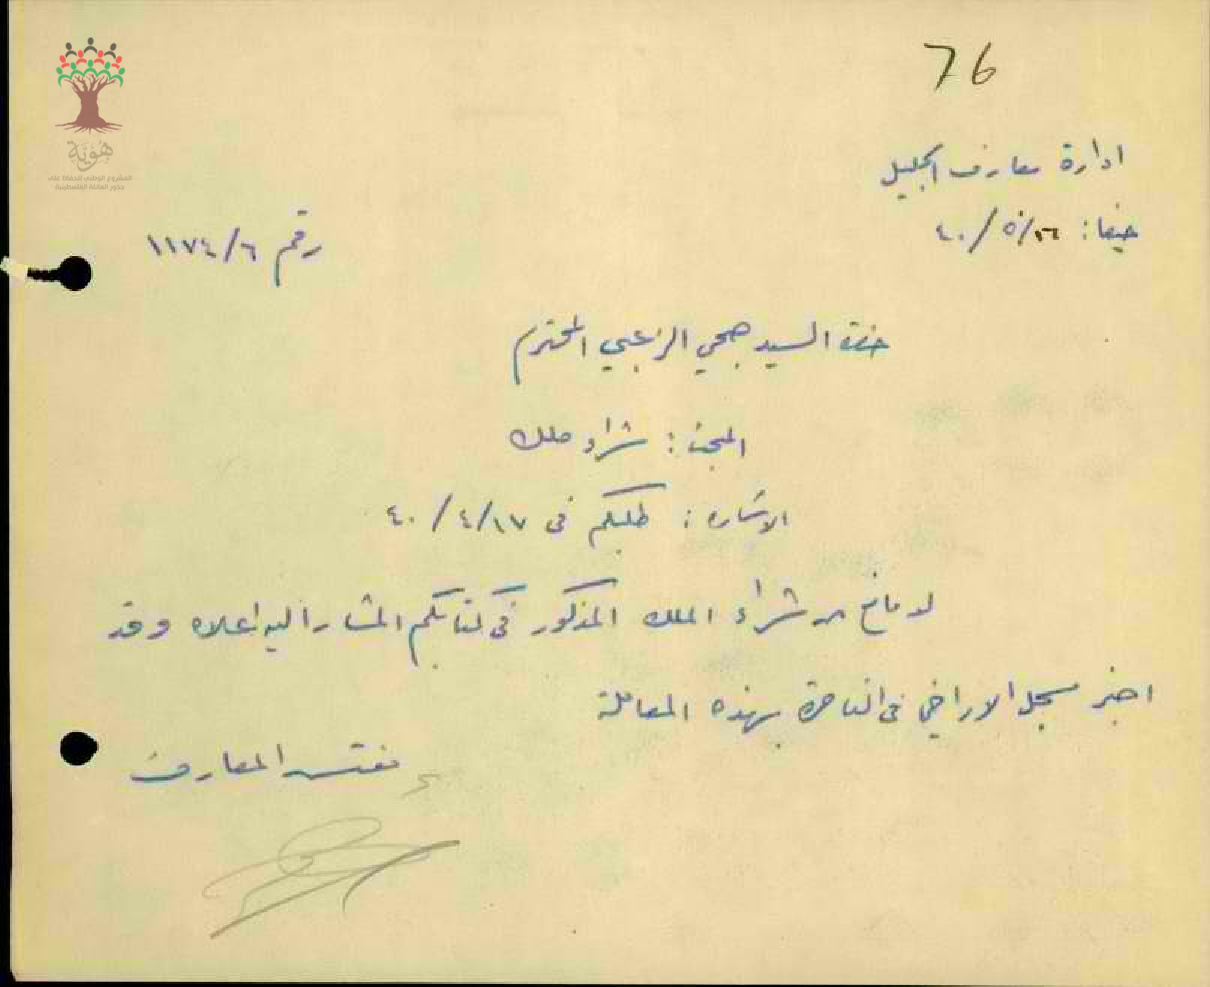 76
هوية
المشروع الوطني للحفاظ على
جذور العائلة الفلسطينية
ادارة معارف الجليل
حيفا: ١٦/٥/٤٠
رقم ٦/١١٧٤
حضرة السيد صبحي الزعبي المحترم
المبحث: شراء ملك
الاشارة: طلبكم في ١٧/٤/٤٠
لا مانع من شراء الملك المذكور في كتابكم المشار اليه اعلاه وقد
اخبر مسجل الاراضي في الناصرة بهذه المعاملة
مفتش المعارف